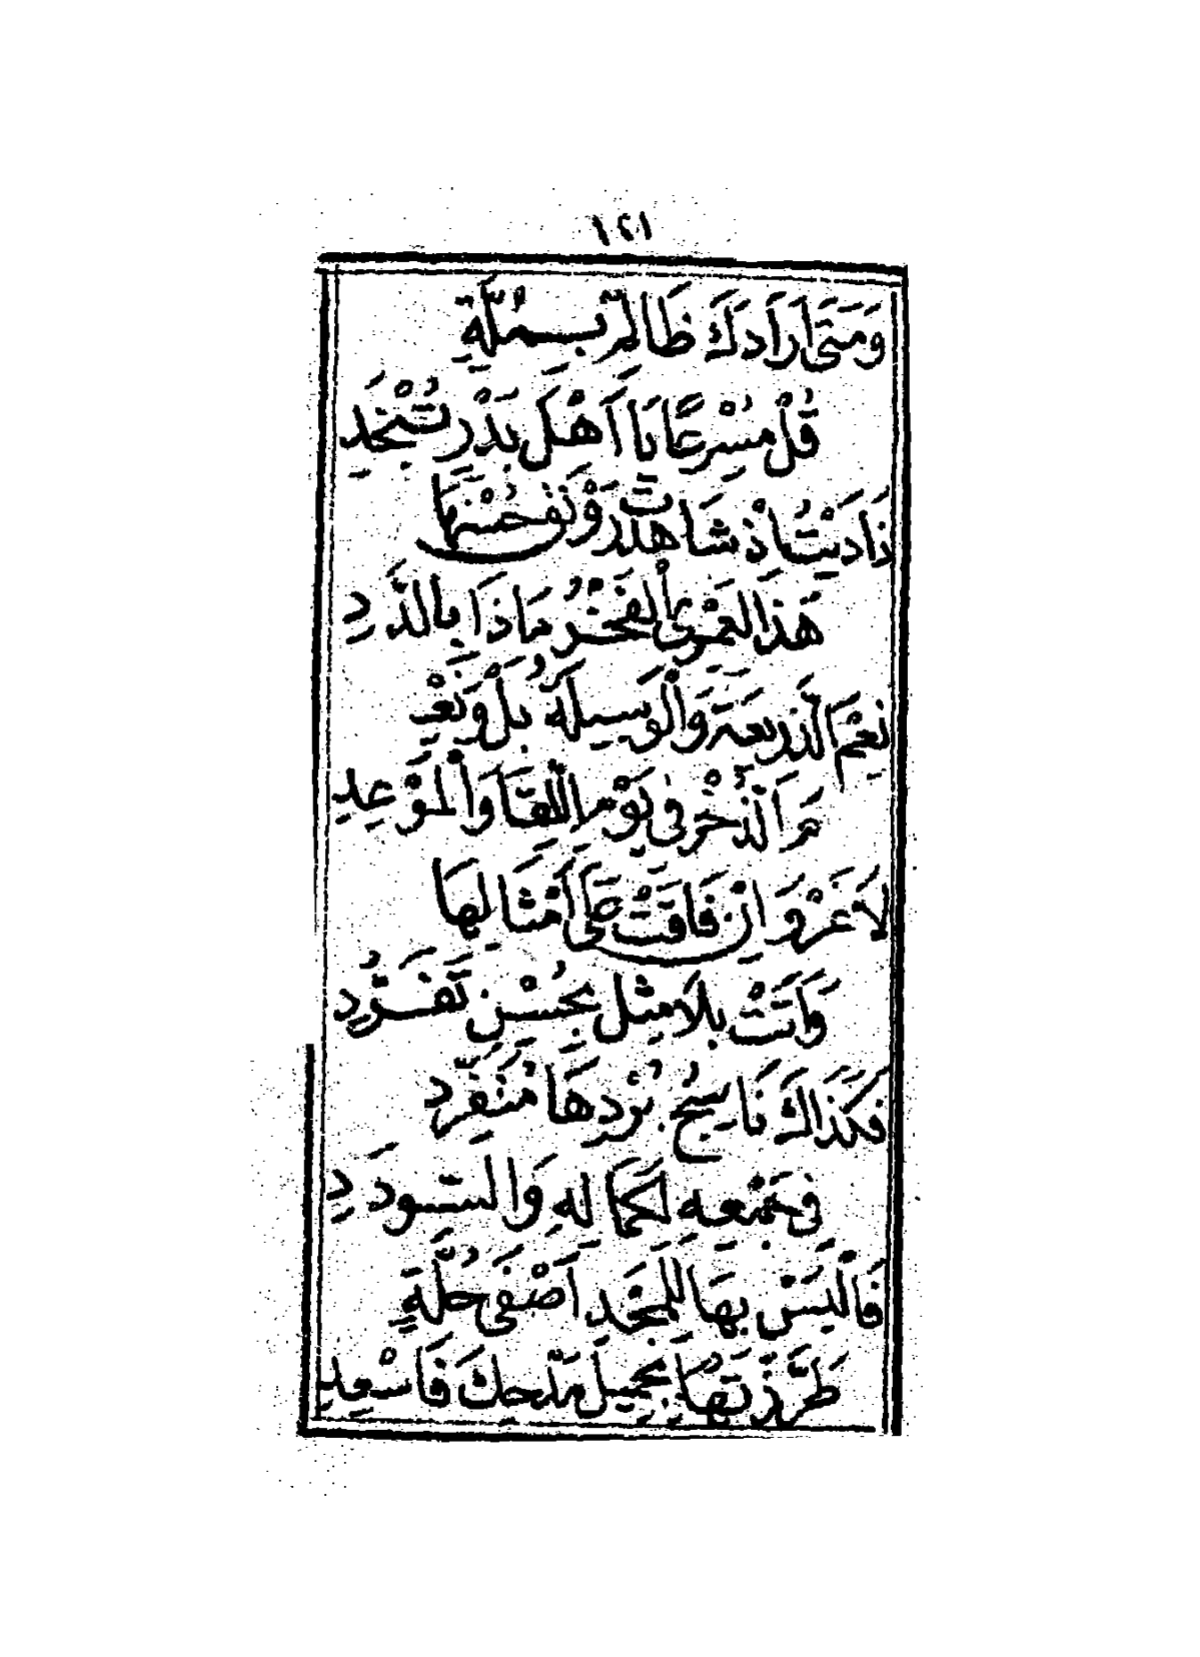 ١٢١
وَمَتَى اَرَادَكَ ظَالِمٌ بِمُلِمَّةٍ
قُلْ مُسْرِعًا يَا اَهْلَ بَدْرٍ تُنْجَدِ
نَادَيْتُ اِذْ شَاهَدْتُ رَوْنَقَ حُسْنِهَا
هَذَا لَعَمْرِى الْفَخْرُ مَاذَا بِالدَّدِ
نِعْمَ الذَّرِيعَةُ وَالْوَسِيلَةُ بَلْ وَنِعْـ
ـمَ الذُّخْرُ فِى يَوْمِ اللِّقَا وَالْمَوْعِدِ
لَاغَرْوَ اِنْ فَاقَتْ عَلَى اَمْثَالِهَا
وَاَتَتْ بِلَا مِثْلٍ بِحُسْنِ تَفَرُّدِ
فَكَذَاكَ نَاسِجُ بُرْدِهَا مُتَفَرِّدٌ
فِى جَمْعِهِ لِكَمَالِهِ وَالسُّودَدِ
فَالْبَسْ بِهَا لِلْمَجْدِ اَصْفَى حُلَّةٍ
طَرَّزْتَهَا بِجَمِيلِ مَدْحِكَ فَاسْعِدِ